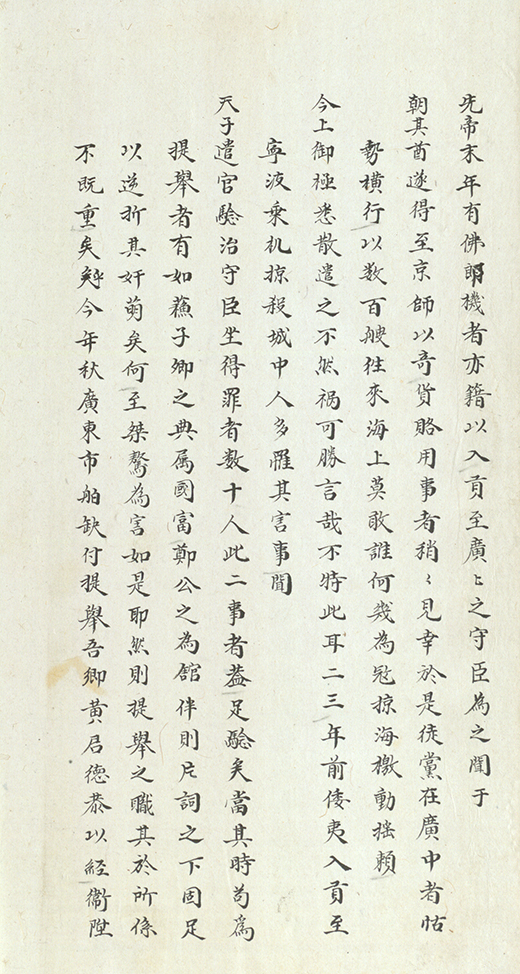 先帝末年有佛郎機者亦籍以入貢至廣〻之守臣為之聞于
朝其酋遂得至京師以奇貨賂用事者稍〻見幸於是徒黨在廣中者怙
勢橫行以数百艘往來海上莫敢誰何幾為冦掠海檄動摇頼
今上御極悉散遣之不然禍可勝言哉不特此耳二三年前倭夷入貢至
寧波乗机掠殺城中人多罹其害事聞
天子遣官驗治守臣坐得罪者数十人此二事者葢足驗矣當其時苟為
提舉者有如蘓子卿之典属國富鄭公之為舘伴則片詞之下固足
以逆折其奸萌矣何至桀驁為害如是耶然則提舉之職其於所係
不既重矣㢤今年秋廣東市舶缺付提舉吾卿黄君德恭以經衞陞